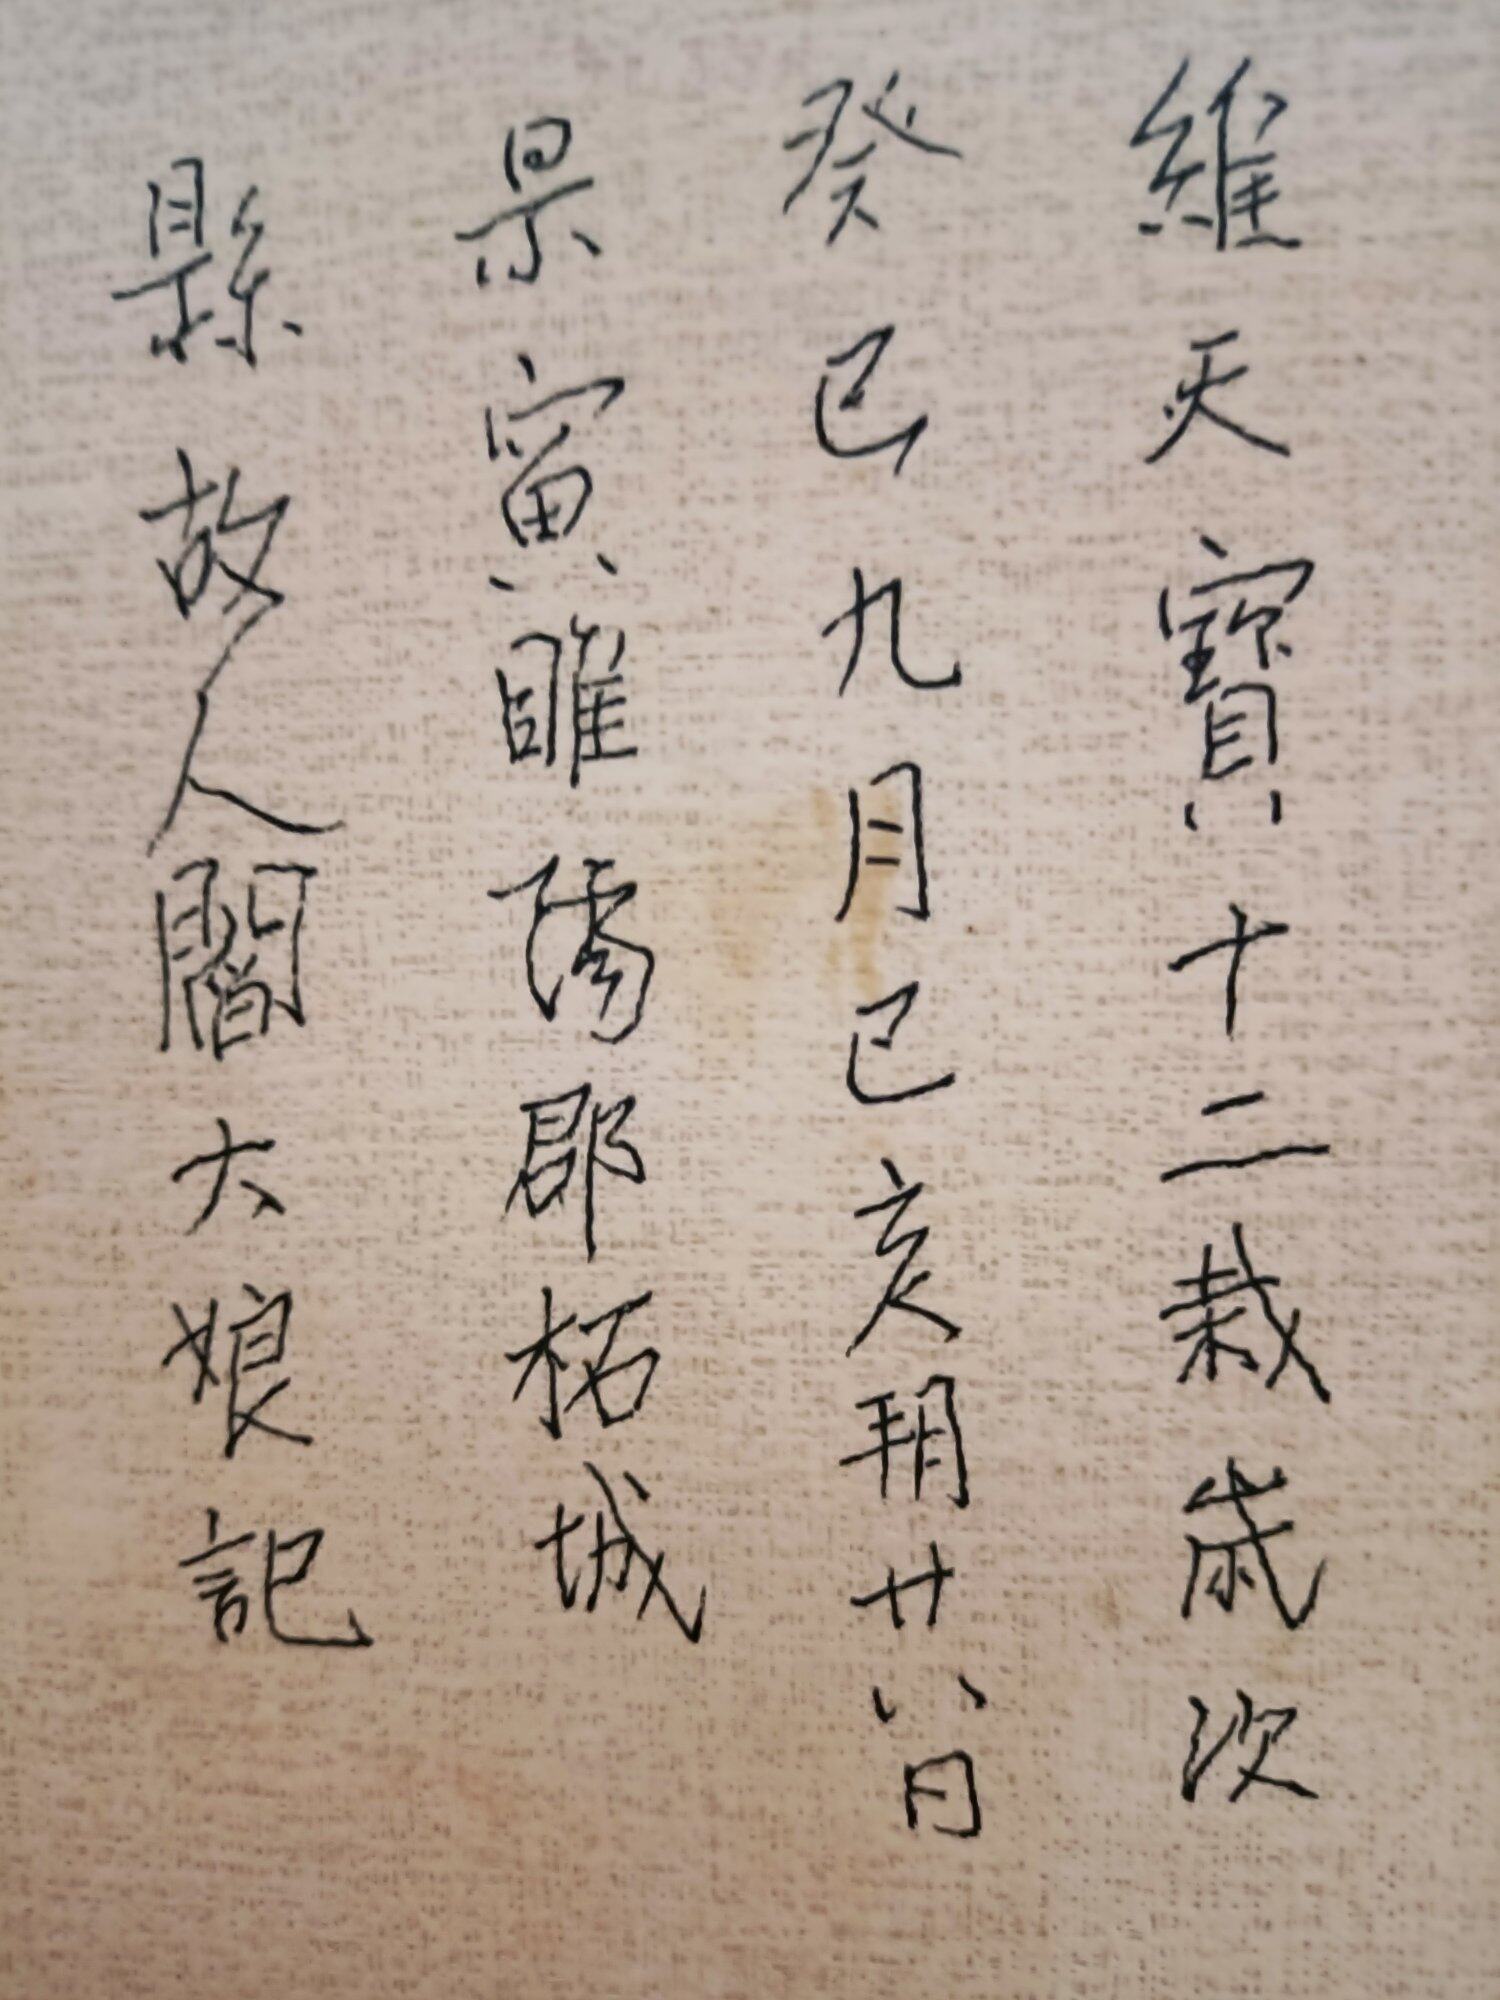 維天寶十二栽歳次
癸巳九月己亥朔廿八日
景寅睢陽郡柘城
縣故人閻大娘記